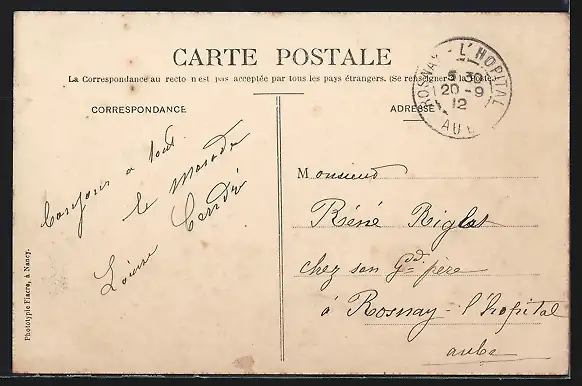 CARTE POSTALE
La Correspondance au recto n'est pas acceptée par tous les pays étrangers. (Se renseigner à la Poste.)
CORRESPONDANCE
ADRESSE
ROSNAY-L'HOPITAL
5-30
20-9
12
AUBE
Bonjour a tout
le monde
Louise
Monsieur
Réné Riglet
chez son Gd père
à Rosnay-l'hopital
aube
Phototypie Fiacre, à Nancy.